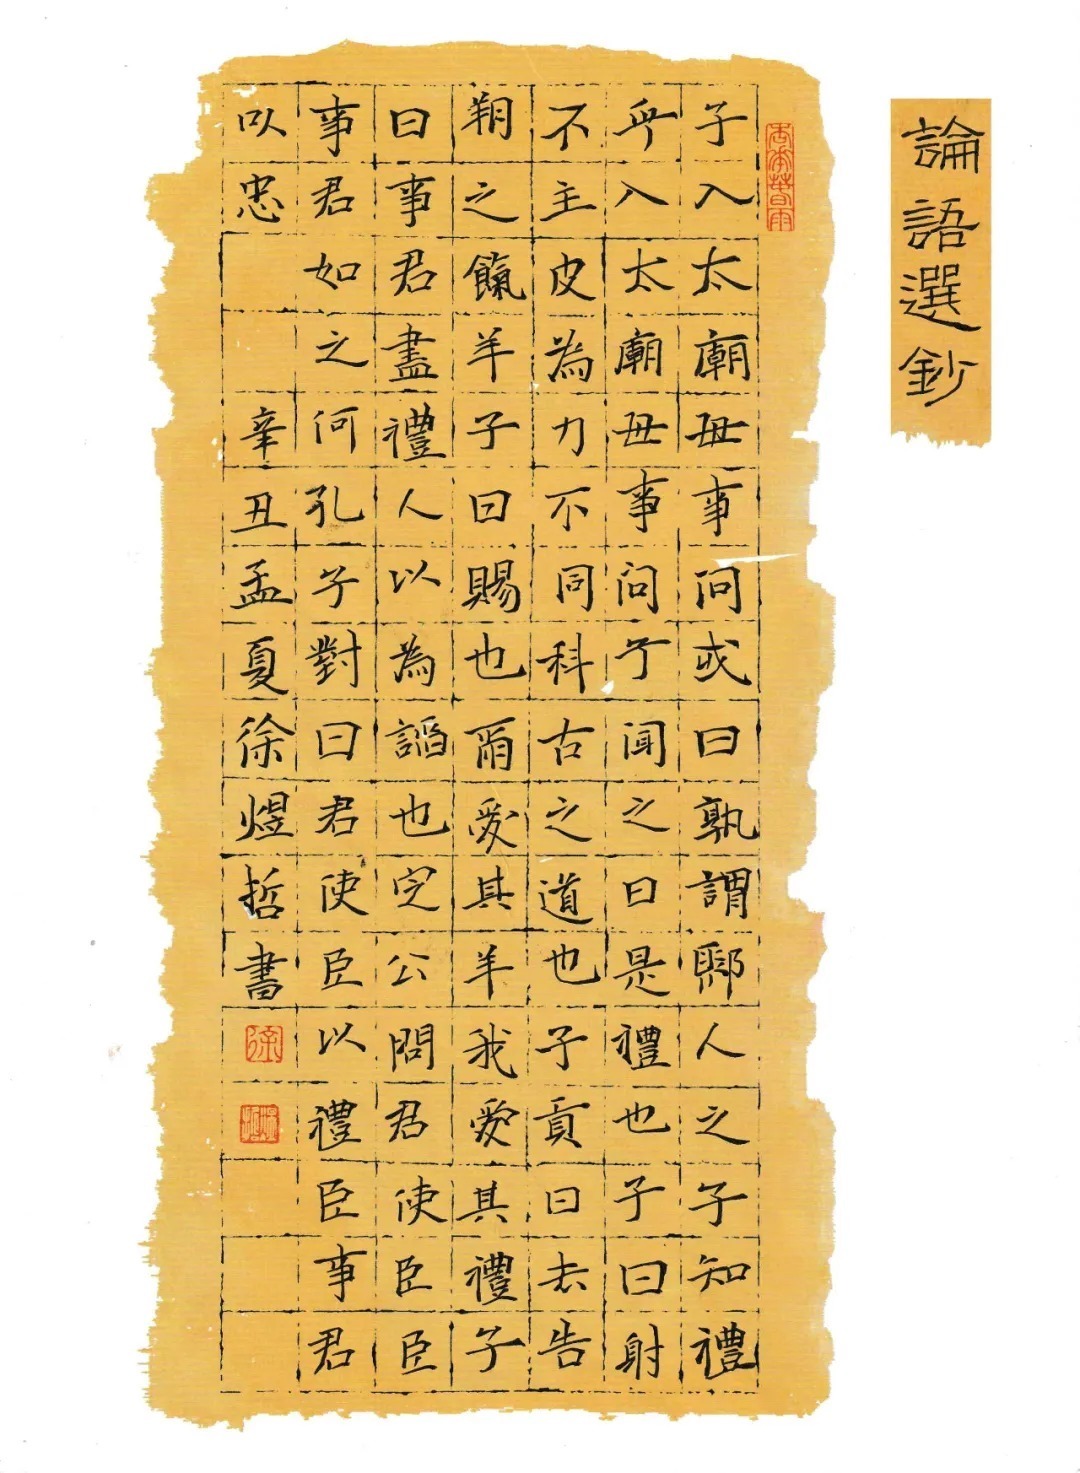 論語選鈔
子入太廟每事问或曰孰謂鄹人之子知禮
乎入太廟每事问子闻之曰是禮也子曰射
不主皮為力不同科古之道也子貢曰去告
朔之餼羊子曰賜也爾愛其羊我愛其禮子
曰事君盡禮人以為謟也定公問君使臣臣
事君如之何孔子對曰君使臣以禮臣事君
以忠 辛丑孟夏徐煜哲書
徐